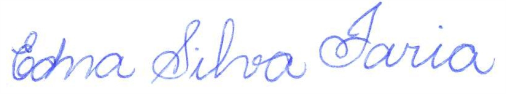 Edna Silva Faria